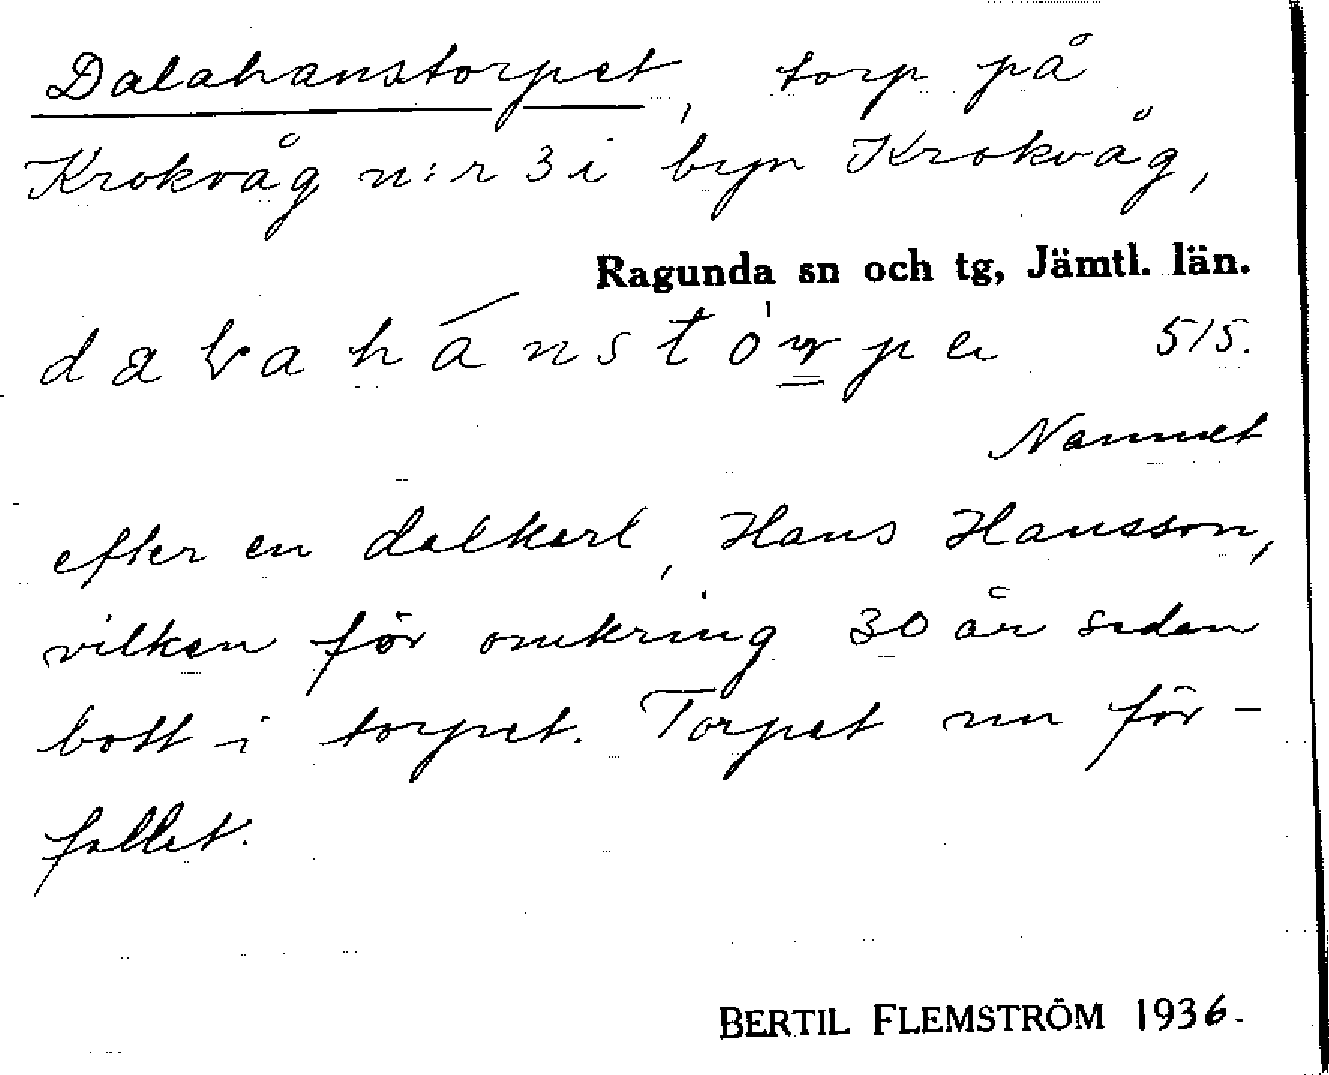 Dalahanstorpet, torp på
Krokvåg n:r 3 i byn Krokvåg,
Ragunda sn och tg, Jämtl. län.
515.
Namnet
efter en dalkarl, Hans Hansson,
vilken för omkring 30 år sedan
bott i torpet. Torpet nu för-
fallet.
BERTIL FLEMSTRÖM 1936.